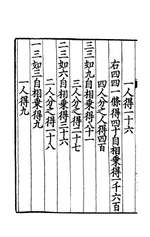 一人得一十六
右四四一條得四十自相乘得一千六百
四人分之人得四百
三三如九自相乘得八十一
三人分之人得二十七
二三如六自相乘得三十六
二人分之人得一十八
一三如三自相乘得九
一人得九